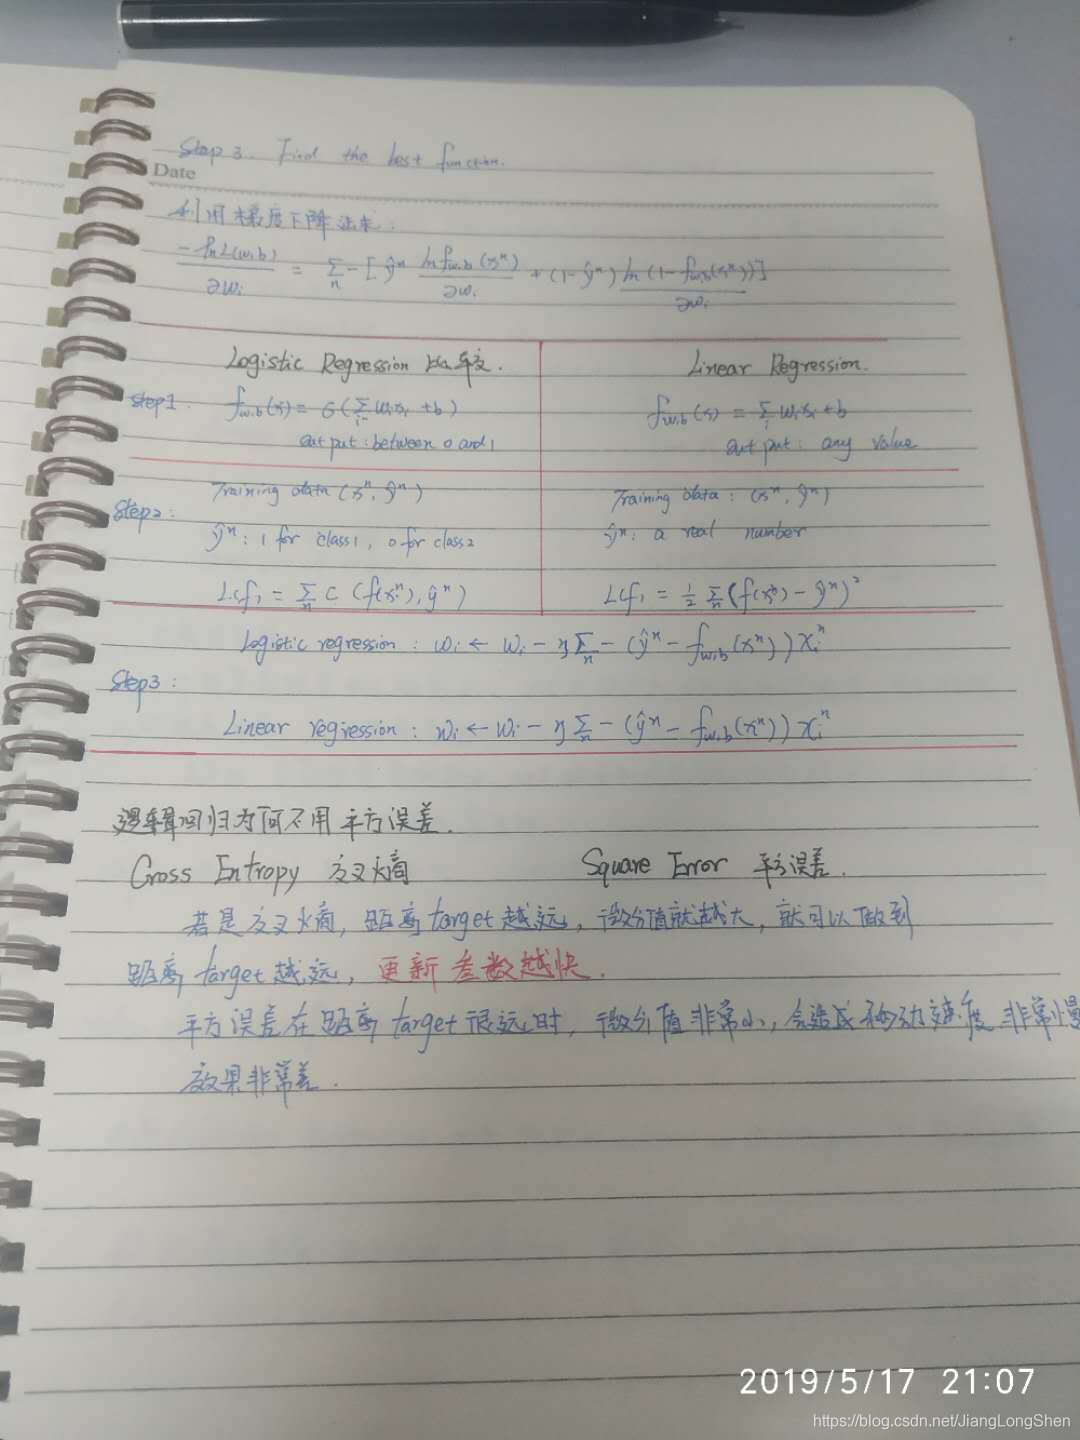 Step 3. Find the best function.
Date
利用梯度下降法来:
-lnL(w,b)/∂wᵢ = Σₙ -[ŷⁿ lnf_w,b(xⁿ)/∂wᵢ + (1-ŷⁿ) ln(1-f_w,b(xⁿ))/∂wᵢ]
Logistic Regression 比较. Linear Regression.
Step1. f_w,b(x) = σ(Σᵢ wᵢxᵢ + b) f_w,b(x) = Σᵢ wᵢxᵢ + b
output: between 0 and 1 output: any value
Training data (xⁿ, ŷⁿ) Training data: (xⁿ, ŷⁿ)
Step2:
ŷⁿ: 1 for class1, 0 for class2 ŷⁿ: a real number
L(f) = Σₙ C(f(xⁿ), ŷⁿ) L(f) = 1/2 Σₙ (f(xⁿ) - ŷⁿ)²
Logistic regression: wᵢ ← wᵢ - η Σₙ -(ŷⁿ - f_w,b(xⁿ)) xᵢⁿ
Step3:
Linear regression: wᵢ ← wᵢ - η Σₙ -(ŷⁿ - f_w,b(xⁿ)) xᵢⁿ
逻辑回归为何不用平方误差.
Cross Entropy 交叉熵 Square Error 平方误差.
若是交叉熵, 距离target越远, 微分值就越大, 就可以做到
距离target越远, 更新参数越快.
平方误差在距离target很远时, 微分值非常小, 会造成移动速度非常慢
效果非常差.
2019/5/17 21:07
https://blog.csdn.net/JiangLongShen